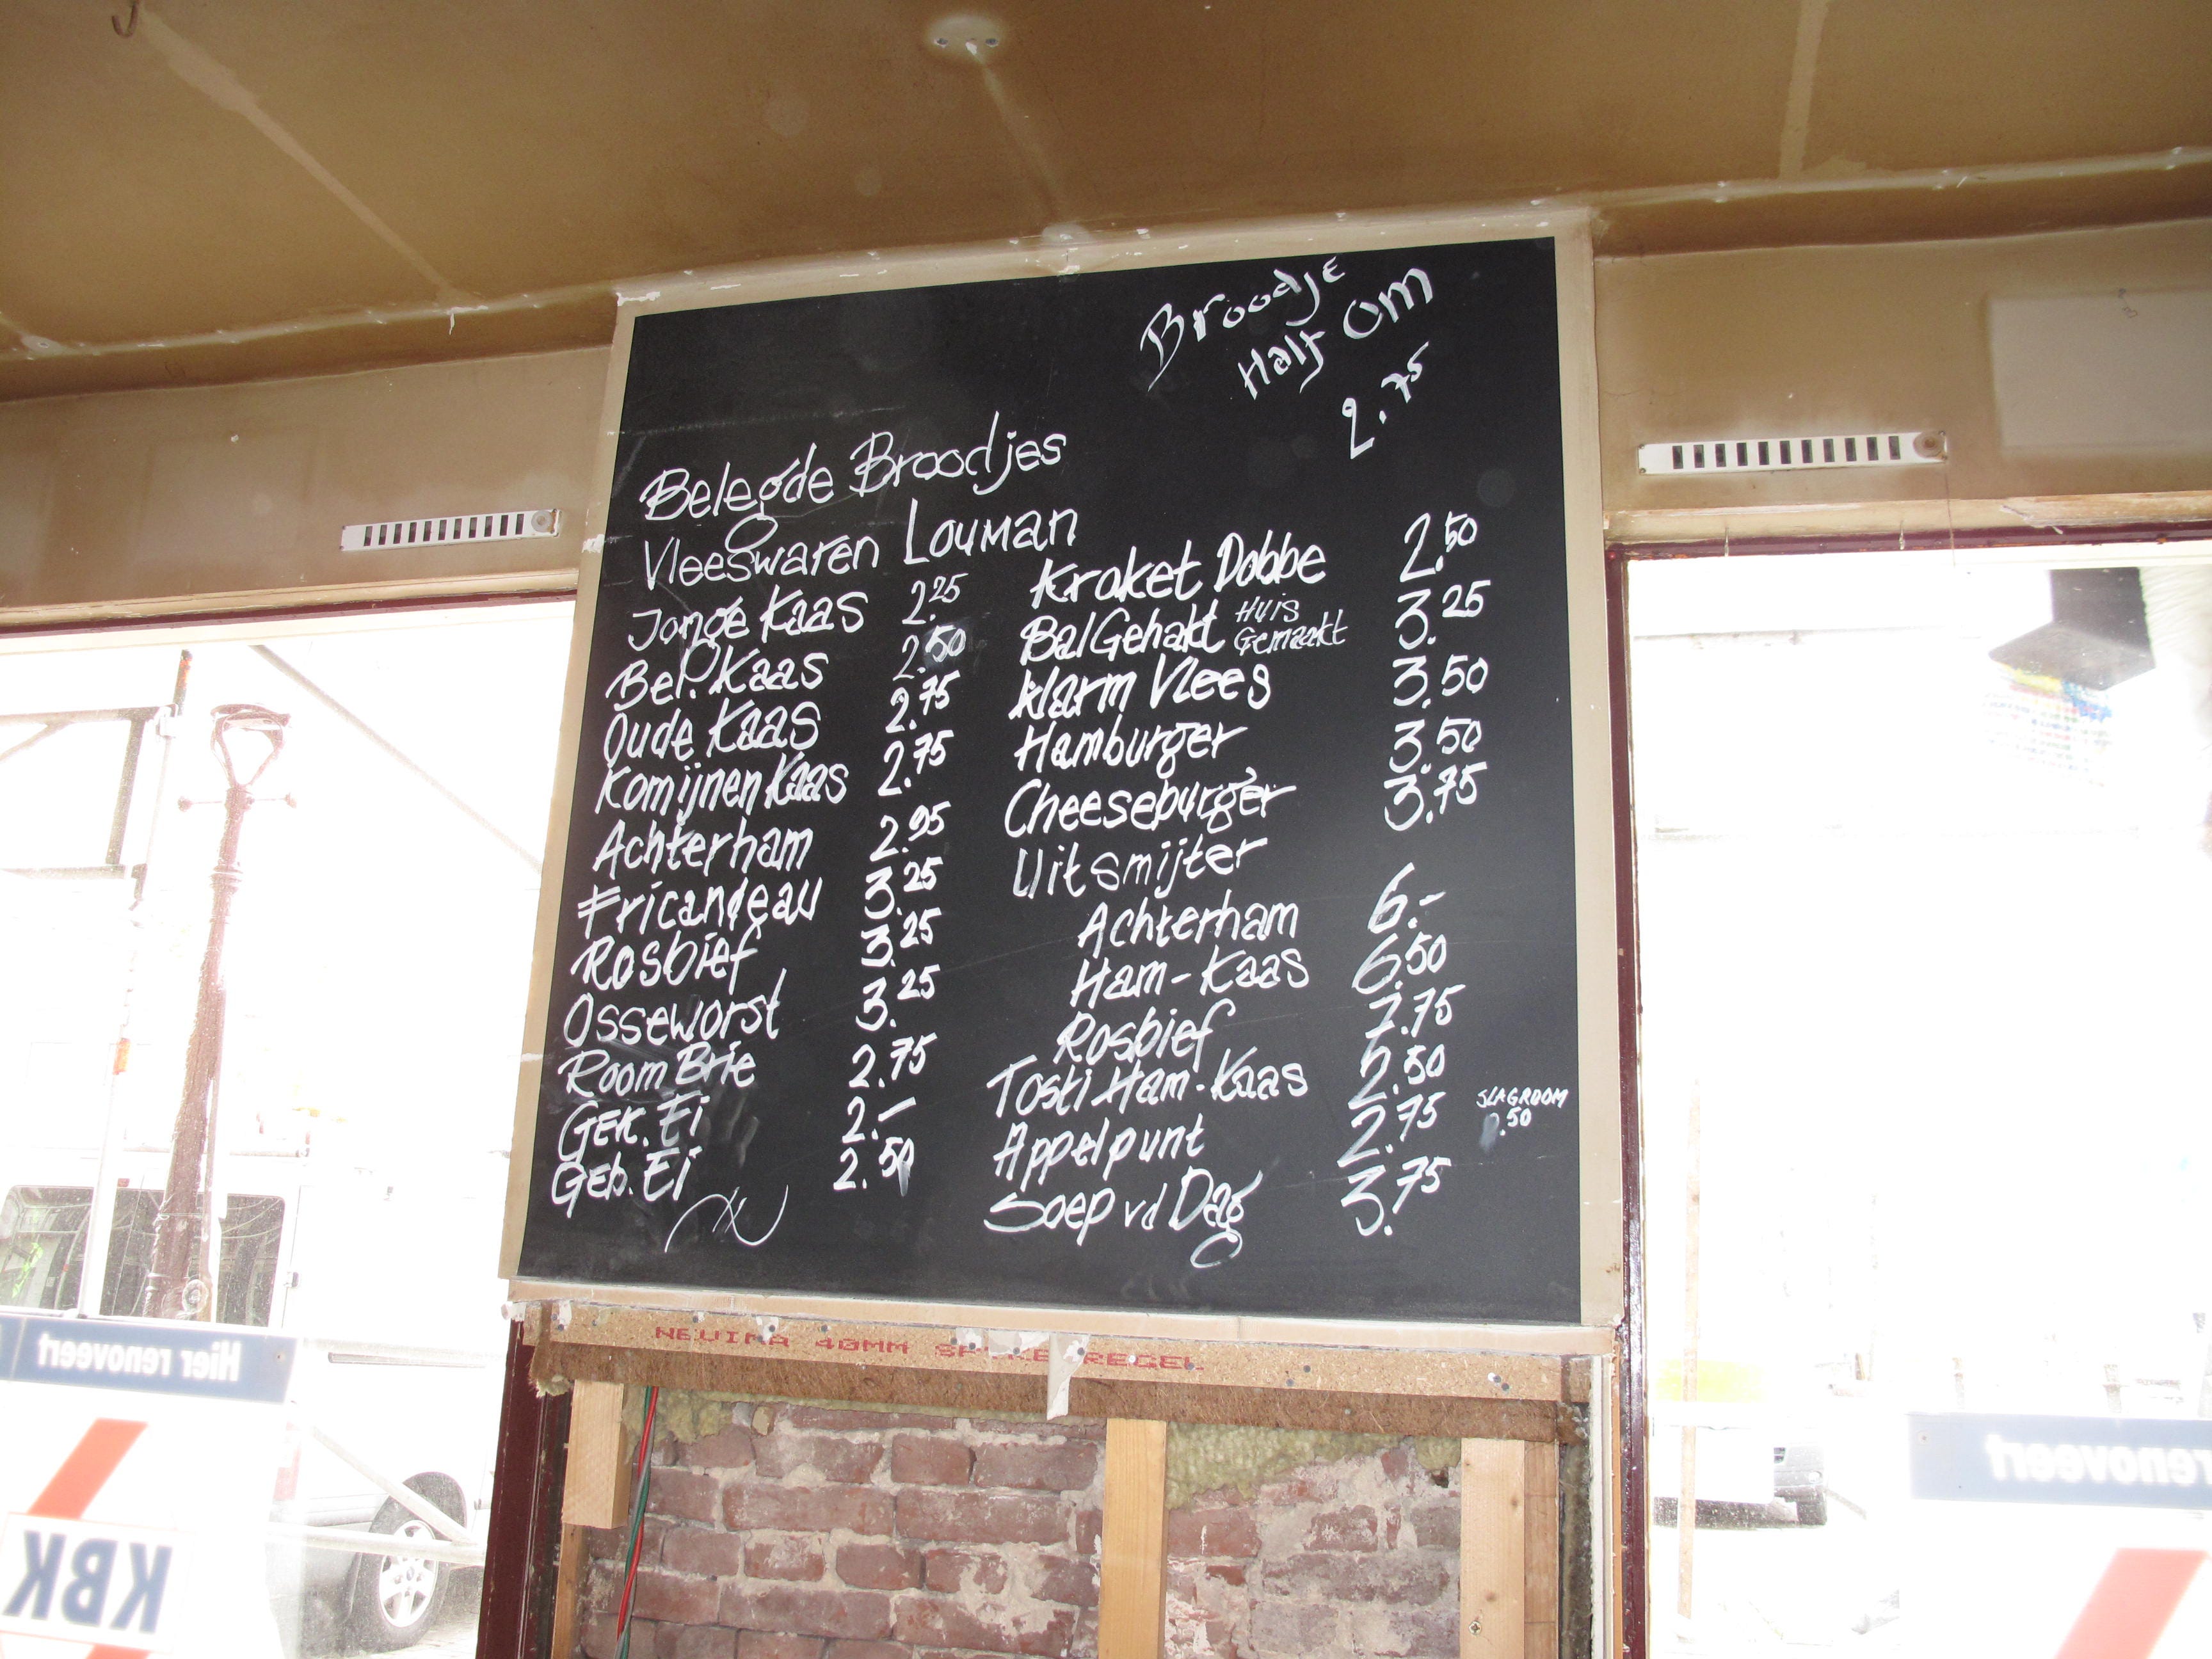 Broodje
Half Om
2.75
Belegde Broodjes
Vleeswaren Louman
Jonge Kaas 2.25
Bel. Kaas 2.50
Oude Kaas 2.75
Komijnen Kaas 2.75
Achterham 2.95
Fricandeau 3.25
Rosbief 3.25
Osseworst 3.25
Room Brie 2.75
Gek. Ei 2.-
Geb. Ei 2.50
Kroket Dobbe 2.50
Bal Gehakt Huis Gemaakt 3.25
Warm Vlees 3.50
Hamburger 3.50
Cheeseburger 3.75
Uitsmijter
Achterham 6.-
Ham-Kaas 6.50
Rosbief 7.75
Tosti Ham-Kaas 2.50
Appelpunt 2.75
SLAGROOM
0.50
Soep vd Dag 3.75
NEVIMA 40MM REGEL
Hier renoveert
KBK
renoveert